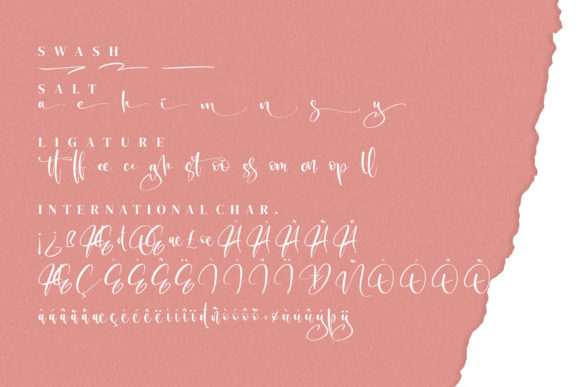 SWASH
SALT
a e h i m n s y
LIGATURE
tt ff ee cc gh st oo ss om on op ll
INTERNATIONAL CHAR.
¡ ¿ ß Æ đ Œ æ £ œ À Á Â Ñ Å
Æ Ç È É Ê Ë Ì Í Î Ï Ð Ñ Ò Ó Ô Õ
à á â ã å æ ç è é ê ë ì í î ï đ ñ ò ó ô õ ÷ ø ù ú û ý þ ÿ